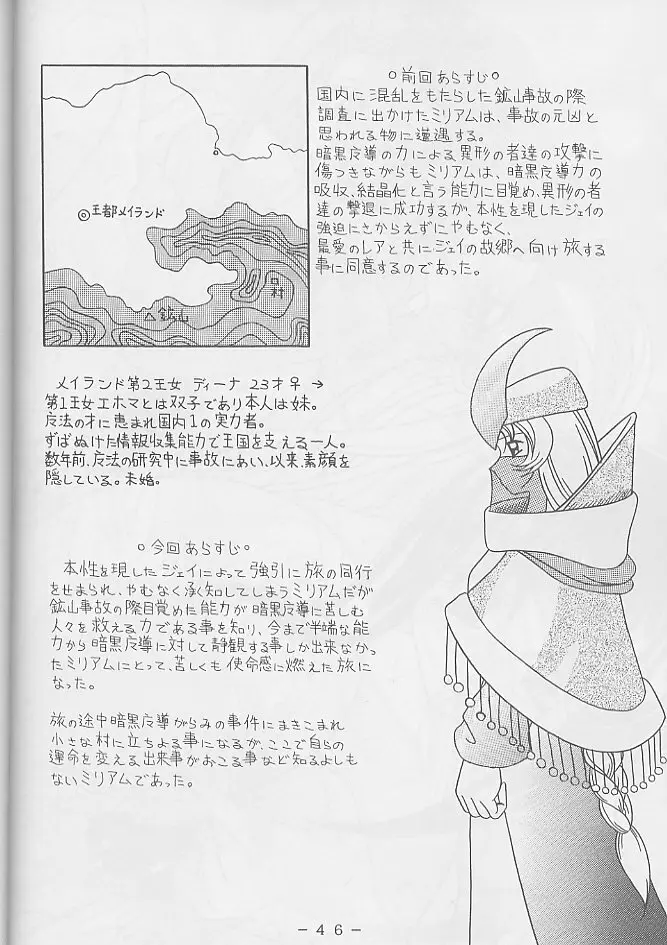 ○前回あらすじ○
国内に混乱をもたらした鉱山事故の際
調査に出かけたミリアムは、事故の元凶と
思われる物に遭遇する。
暗黒反導の力による異形の者達の攻撃に
傷つきながらもミリアムは、暗黒反導力の
吸収、結晶化と言う能力に目覚め、異形の者
達の撃退に成功するが、本性を現したジェイの
強迫にさからえずにやむなく、
最愛のレアと共にジェイの故郷へ向け旅する
事に同意するのであった。
◎王都メイランド
口村
△鉱山
メイランド第2王女 ディーナ 23才♀→
第1王女エホマとは双子であり本人は妹。
反法の才に恵まれ国内1の実力者。
ずばぬけた情報収集能力で王国を支える一人。
数年前、反法の研究中に事故にあい、以来、素顔を
隠している。未婚。
○今回あらすじ○
本性を現したジェイによって強引に旅の同行
をせまられ、やむなく承く知してしまうミリアムだが
鉱山事故の際目覚めた能力が暗黒反導に苦しむ
人々を救える力である事を知り、今まで半端な能
力から暗黒反導に対して静観する事しか出来なかっ
たミリアムにとって、苦しくも使命感に燃えた旅に
なった。
旅の途中暗黒反導がらみの事件にまきこまれ
小さな村に立ちよる事になるが、ここで自らの
運命を変える出来事がおこる事など知るよしも
ないミリアムであった。
－46－